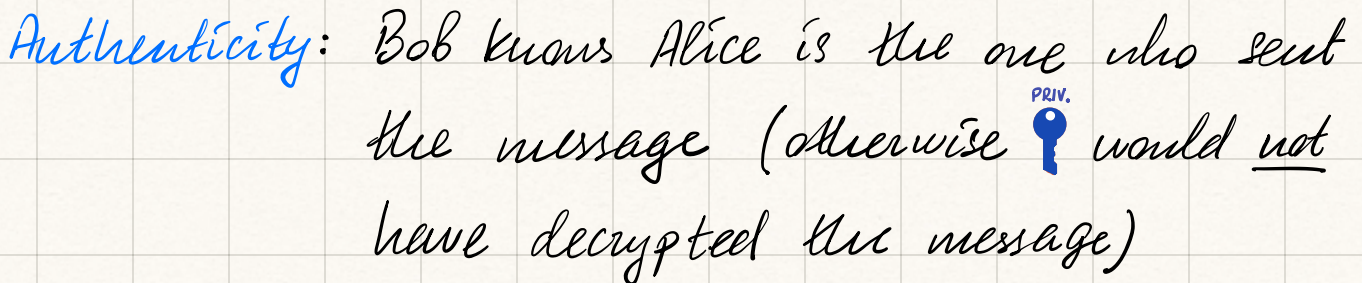 Authenticity: Bob knows Alice is the one who sent
PRIV.
the message (otherwise would not
have decrypted the message)